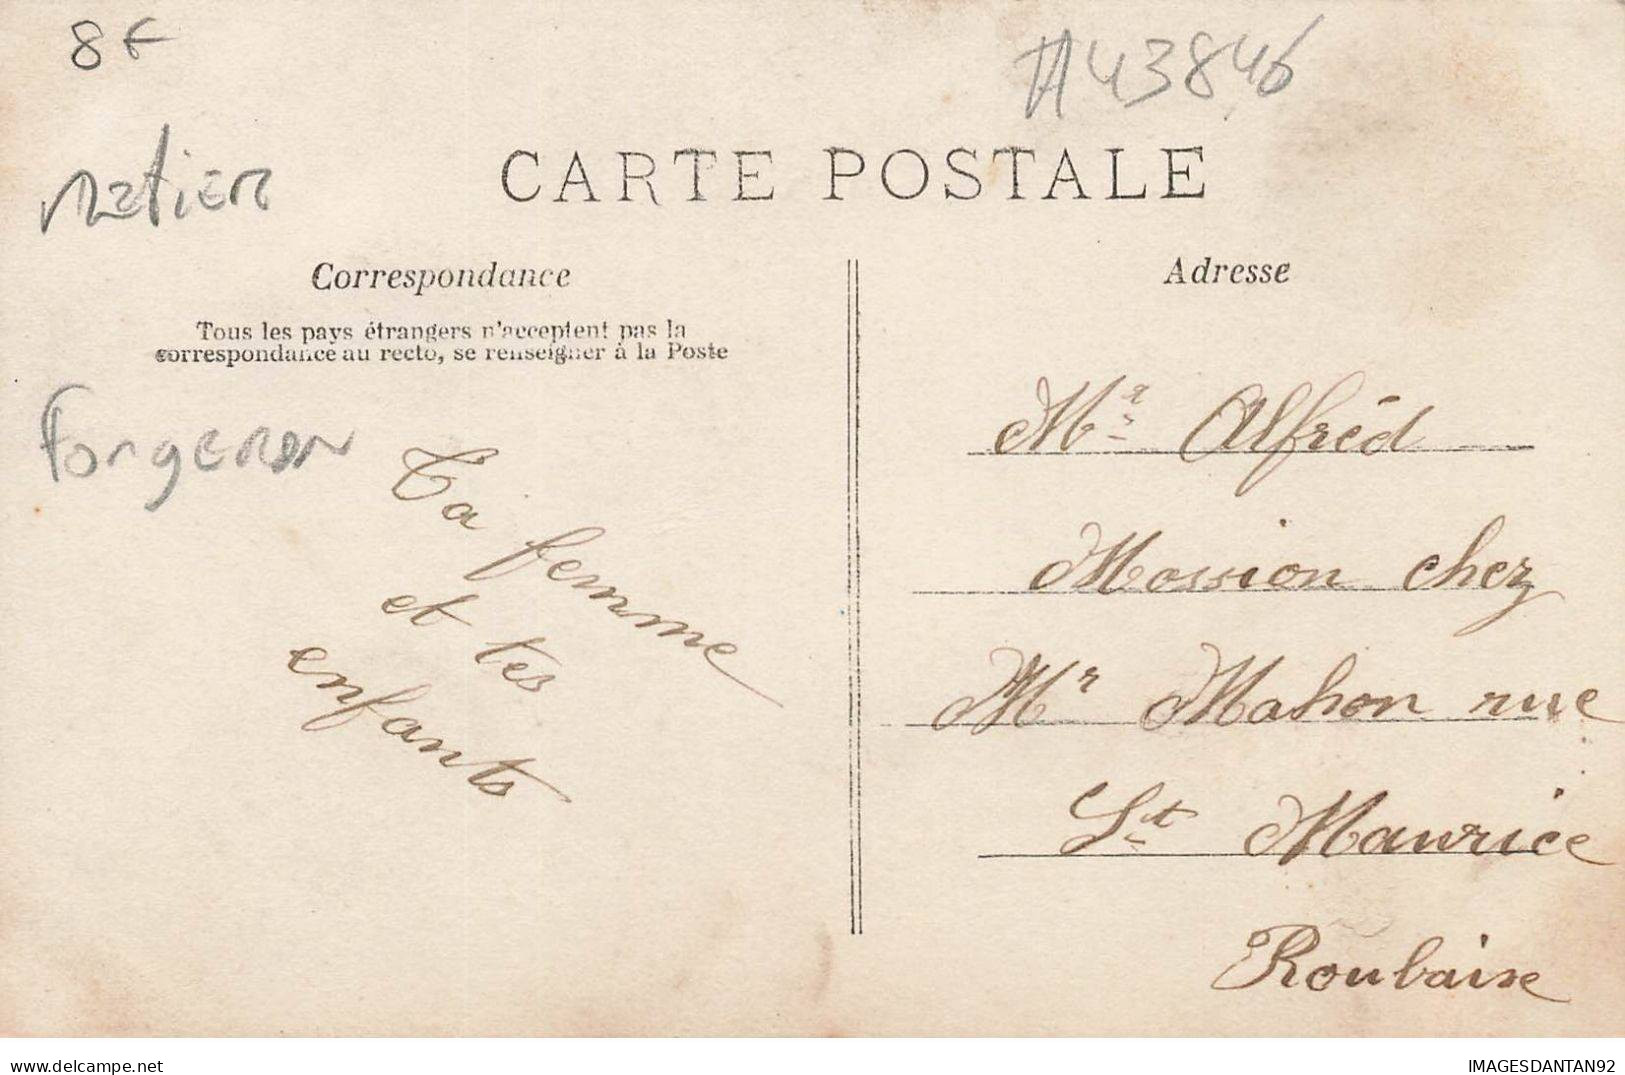 8 F
A43846
CARTE POSTALE
Metier
Correspondance
Tous les pays étrangers n'acceptent pas la
correspondance au recto, se renseigner à la Poste
Forgeron
Ta femme
et tes
enfants
Adresse
Mr Alfréd
Mossion chez
Mr Mahon rue
St Maurice
Roubaix
IMAGESDANTAN92
delcampe.net